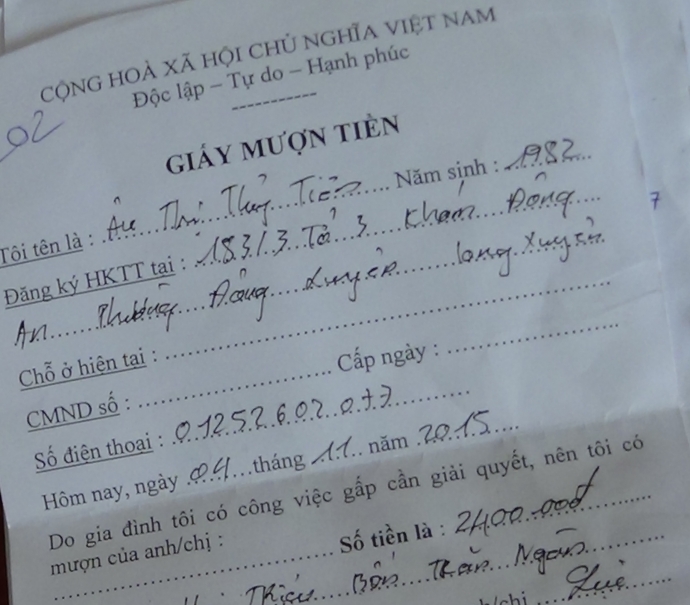 CỘNG HOÀ XÃ HỘI CHỦ NGHĨA VIỆT NAM
Độc lập – Tự do – Hạnh phúc
02
GIẤY MƯỢN TIỀN
Tôi tên là : Âu Thị Thủy Tiên Năm sinh : 1982
7
Đăng ký HKTT tại : 183/3 Tổ 3 Khóm Đông
An Phường Đông Xuyên Long Xuyên
Chỗ ở hiện tại :
CMND số : Cấp ngày :
Số điện thoại : 01252602077
Hôm nay, ngày 04 tháng 11 năm 2015
Do gia đình tôi có công việc gấp cần giải quyết, nên tôi có
mượn của anh/chị : Số tiền là : 2400.000đ
Bốn Trăm Ngàn